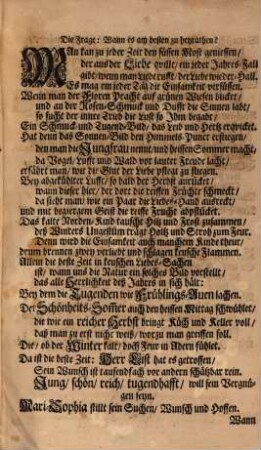 Die Frage: Wann es am besten zu heyrathen?
MAn kan zu jeder Zeit den süssen Most geniessen/
der aus der Liebe quillt/ ein jeder Jahres-Fall
gibt/ wenn man Liebe rufft/ der Liebe wieder-Hall.
Es mag ein jeder Tag die Einsamkeit versüssen.
Wenn man der Floren Pracht auf grünen Wiesen blicket/
und an der Rosen-Schmuck und Dufft die Sinnen labt/
so sucht der innre Trieb die Lust so Ihm begabt/
Ein Schmuck und Tugend-Bild/ das Leib und Hertz erquicket.
Hat denn das Sonnen-Bild den Himmels-Punct erstiegen
den man die Jungfrau nennt/ und heissen Sommer macht/
da Vogel/ Lufft und Wald vor lauter Freude lacht/
erfährt man/ wie die Glut der Liebe pflegt zu siegen.
Bey abgekühlter Lufft/ so bald der Herbst anrücket/
wenn dieser hier/ der dort die reiffen Früchte schmeckt/
da sieht man/ wie ein Paar die Liebes-Hand ausreckt/
und mit begierigem Geist die reiffe Frucht abpflücket.
Das kalte Norden-Kind rauscht Hitz und Frost zusammen/
deß Winters Ungestümm trägt Holtz und Stroh zum Feur.
Denn wird die Einsamkeit auch manchem Kinde theur/
drum brennen zwey verliebt und schlagen keusche Flammen.
Allein die beste Zeit in keuschen Liebes-Sachen
ist/ wann uns die Natur ein solches Bild vorstellt/
das alle Herrlichkeit deß Jahres in sich hält:
Bey dem die Tugenden wie Frühlings-Auen lachen.
Der Schönheits-Sommer auch den heissen Mittag schwühlet/
die wie ein reicher Herbst bringt Küch und Keller voll/
daß man zu erst nicht weiß/ wozu man greiffen soll.
Die/ ob der Winter kalt/ doch Feur in Adern fühlet.
Da ist die beste Zeit: Herr List hat es getroffen/
Sein Wunsch ist tausendfach vor andern schätzbar rein.
Jung/ schön/ reich/ tugendhafft/ will sein Vergnügen seyn.
Mari-Sophia stillt sein Suchen/ Wunsch und Hoffen.
Wann